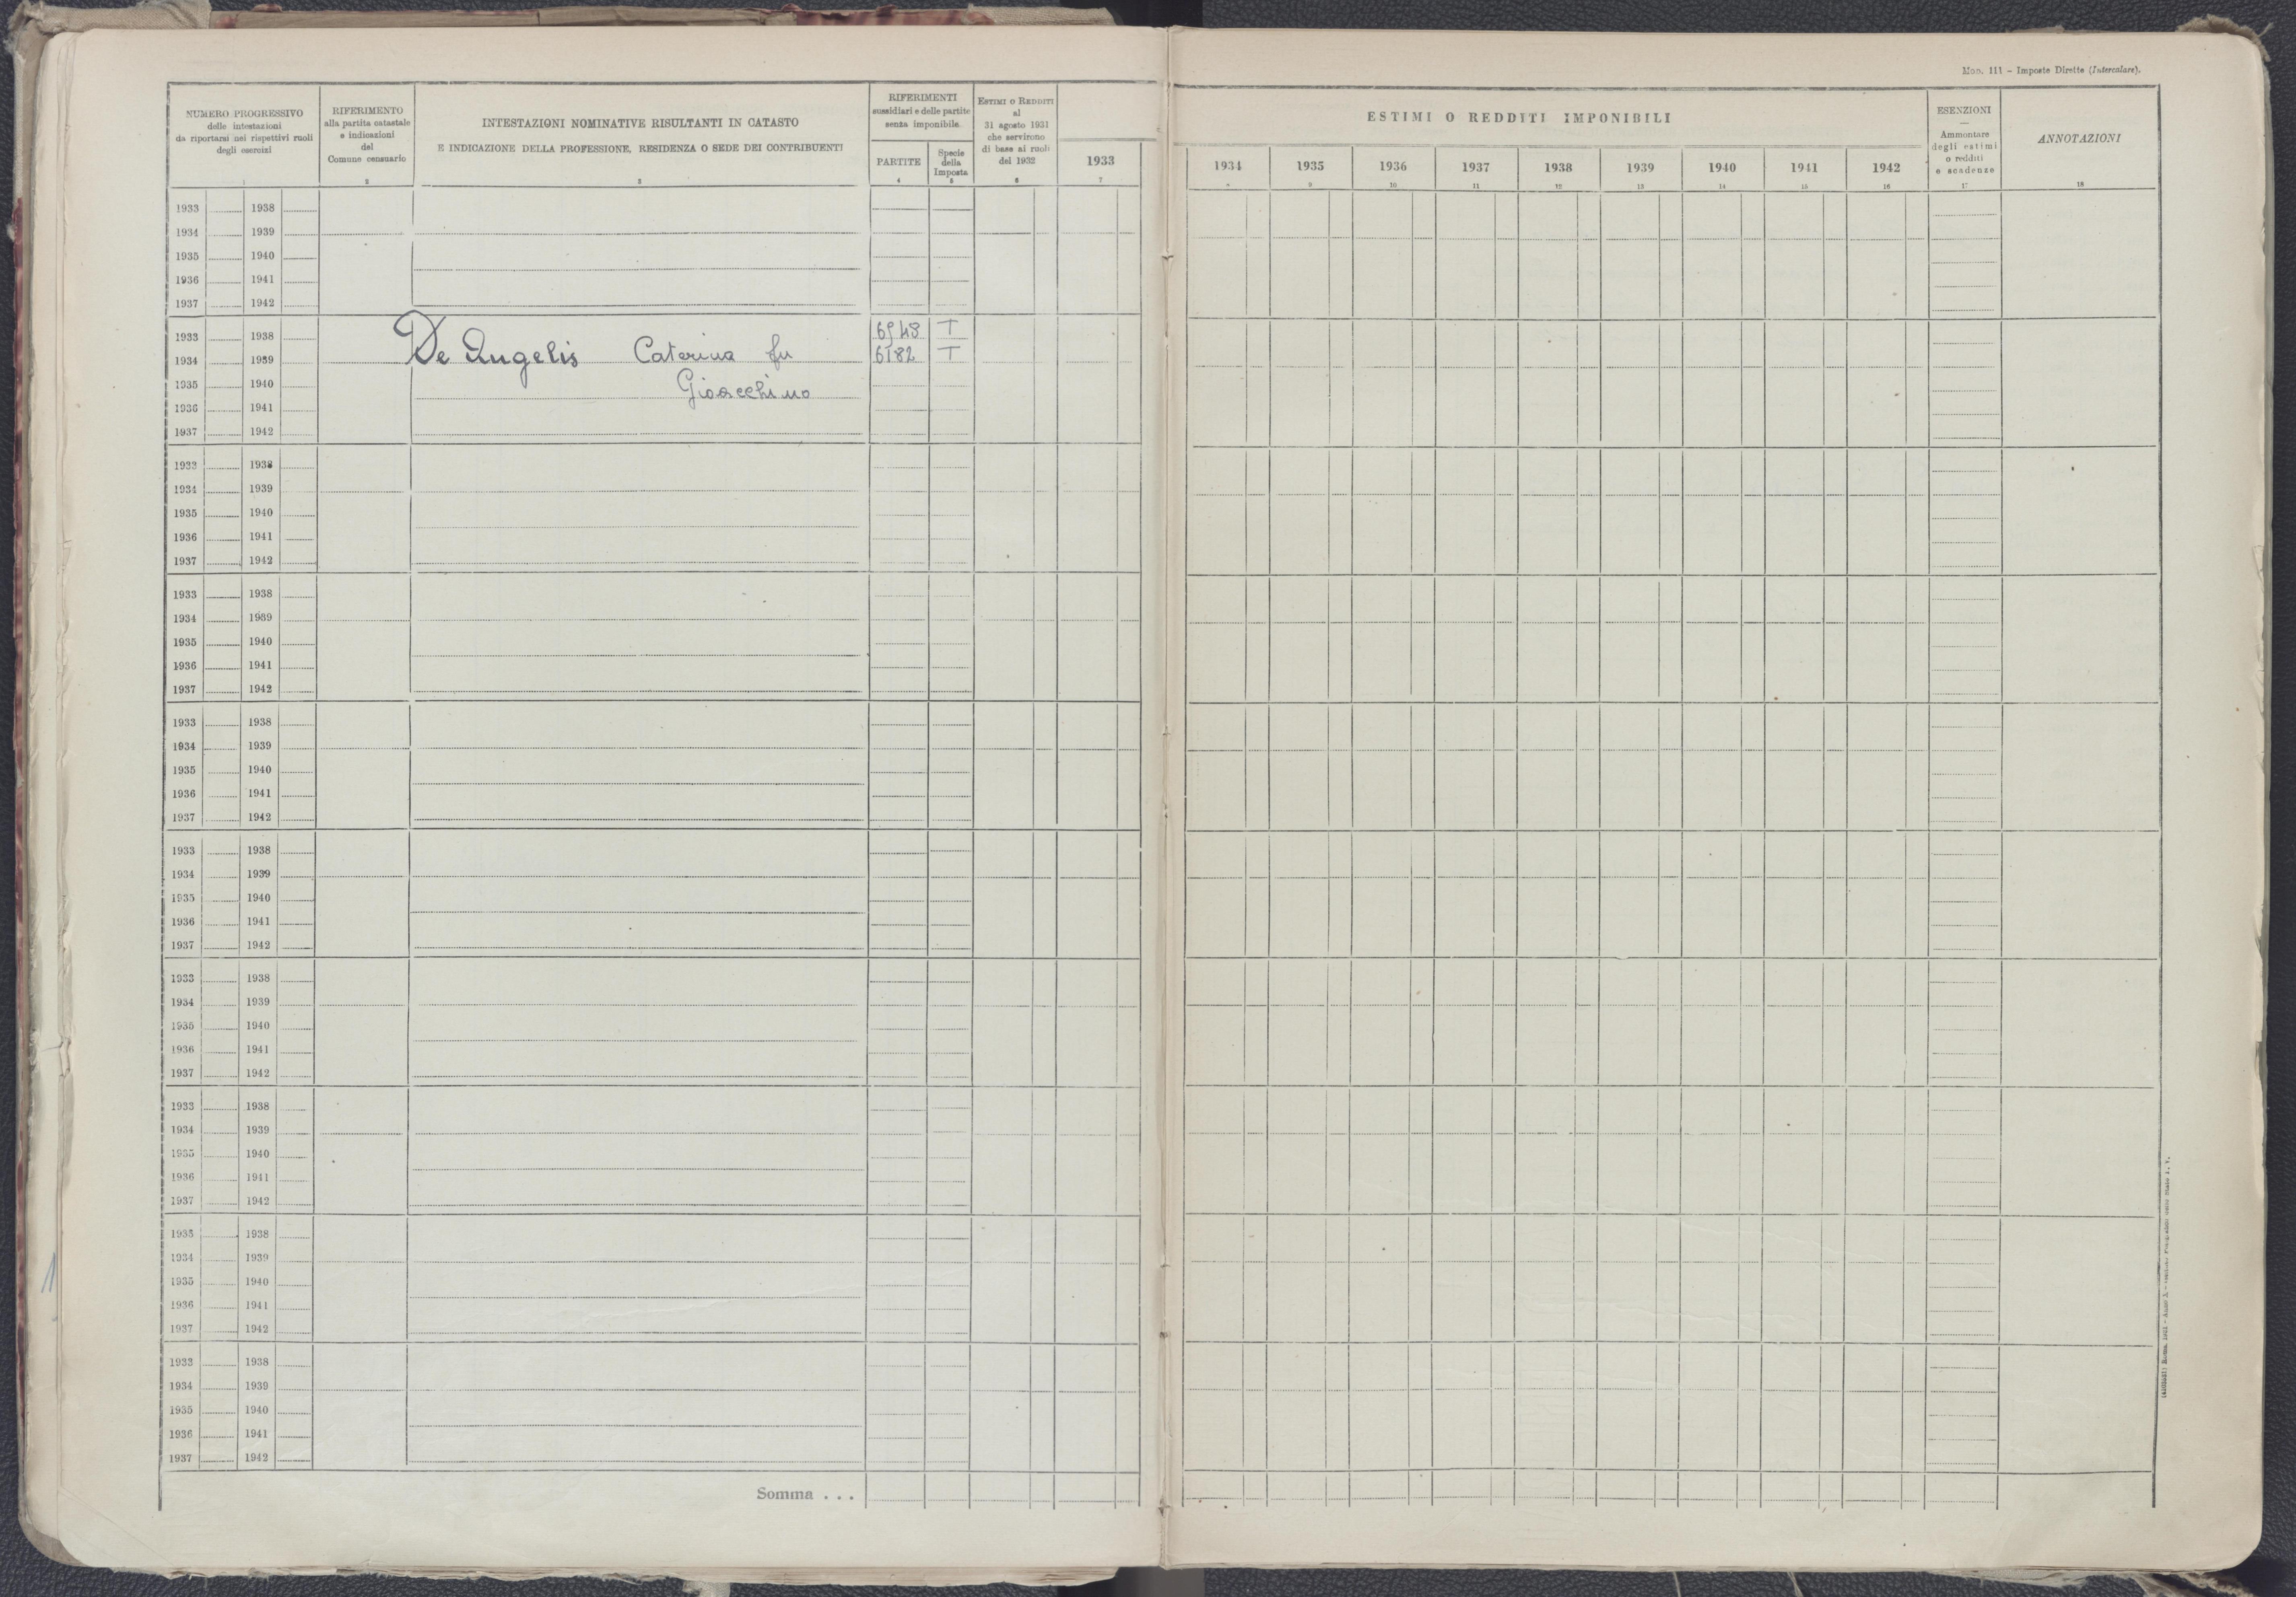 Mod. 111 - Imposte Dirette (Intercalare).
NUMERO PROGRESSIVO
delle intestazioni
da riportarsi nei rispettivi ruoli
degli esercizi
1
RIFERIMENTO
alla partita catastale
e indicazioni
del
Comune censuario
2
INTESTAZIONI NOMINATIVE RISULTANTI IN CATASTO
E INDICAZIONE DELLA PROFESSIONE, RESIDENZA O SEDE DEI CONTRIBUENTI
3
RIFERIMENTI
sussidiari e delle partite
senza imponibile
PARTITE
4
Specie
della
Imposta
5
ESTIMI O REDDITI
al
31 agosto 1931
che servirono
di base ai ruoli
del 1932
6
1933
7
ESTIMI O REDDITI IMPONIBILI
1934 1935 1936 1937 1938 1939 1940 1941 1942
9 10 11 12 13 14 15 16
ESENZIONI
Ammontare
degli estimi
o redditi
e scadenze
17
ANNOTAZIONI
18
1933 1938
1934 1939
1935 1940
1936 1941
1937 1942
1933 1938 T
1934 1939 De Angelis Caterina fu 6182 T
1935 1940 Gioacchino
1936 1941
1937 1942
1933 1938
1934 1939
1935 1940
1936 1941
1937 1942
1933 1938
1934 1939
1935 1940
1936 1941
1937 1942
1933 1938
1934 1939
1935 1940
1936 1941
1937 1942
1933 1938
1934 1939
1935 1940
1936 1941
1937 1942
1933 1938
1934 1939
1935 1940
1936 1941
1937 1942
1933 1938
1934 1939
1935 1940
1936 1941
1937 1942
1933 1938
1934 1939
1935 1940
1936 1941
1937 1942
1933 1938
1934 1939
1935 1940
1936 1941
1937 1942
Somma . . .